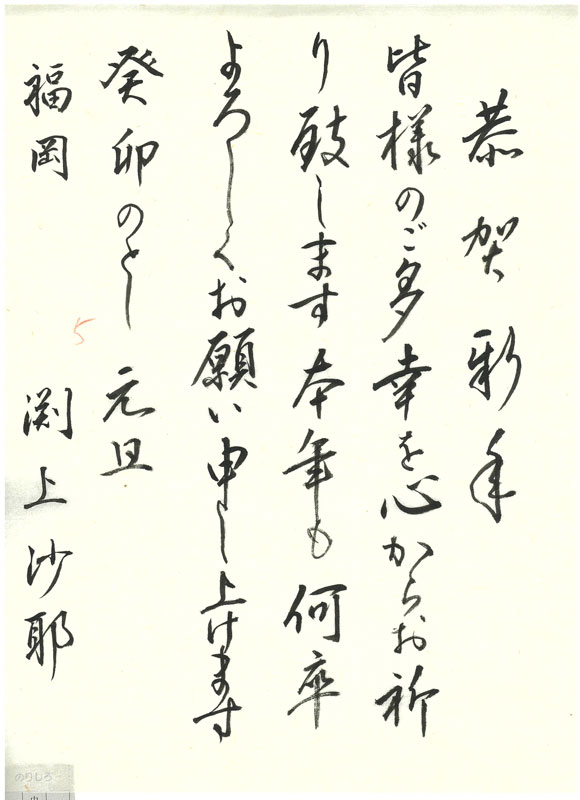 恭賀新年
皆様のご多幸を心からお祈
り致します本年も何卒
よろしくお願い申し上げます
癸卯のとし 元旦
5
福岡 渕上沙耶
のりしろ